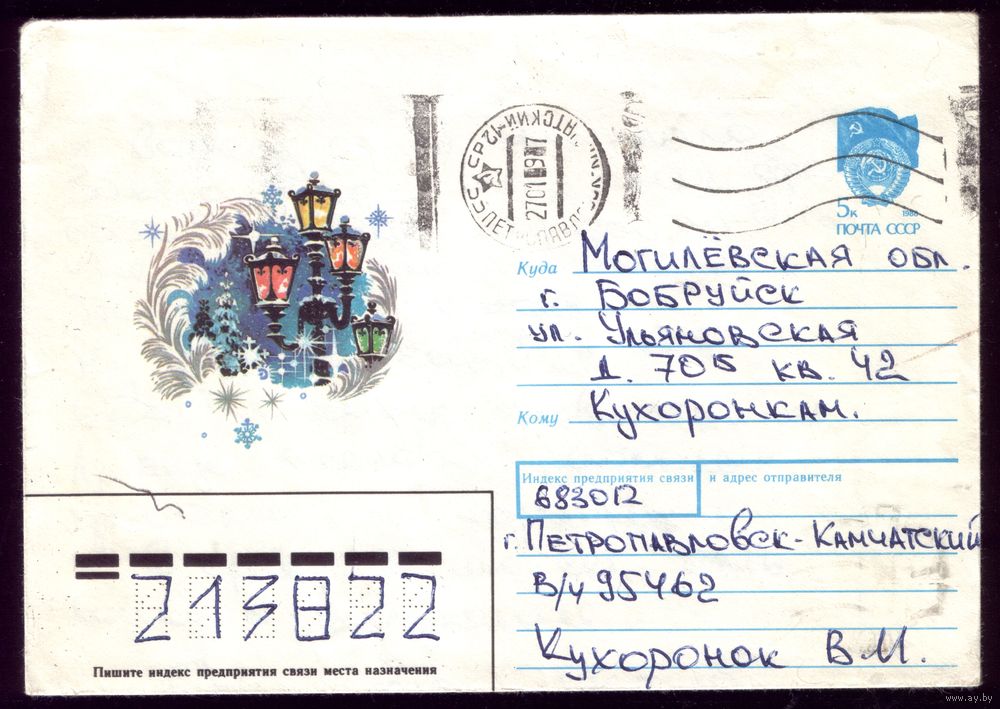 5к 1988
ПОЧТА СССР
СССР 27 01 91 17
Куда Могилёвская обл.
г. Бобруйск
ул. Ульяновская
д. 70Б кв. 42
Кому Кухоронкам.
Индекс предприятия связи и адрес отправителя
683012
г. Петропавловск-Камчатский
В/ч 95462
Кухоронок В.И.
213822
Пишите индекс предприятия связи места назначения
www.ay.by